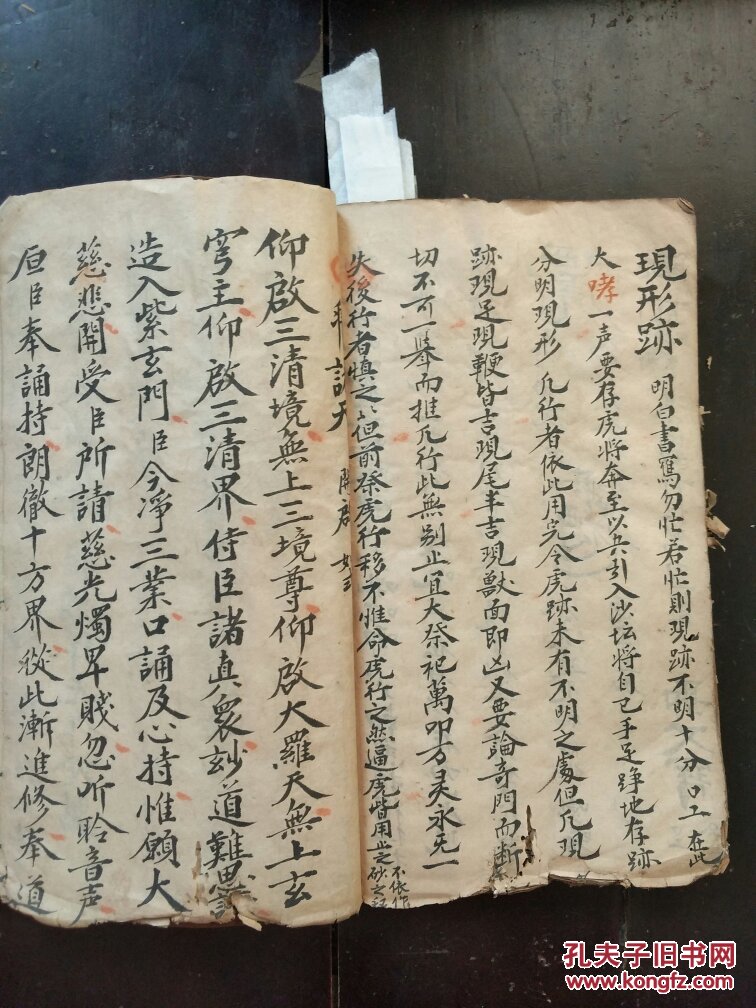 現形跡 明白書寫勿忙若忙則現跡不明十分口工在此
大哮一声要存虎將奔至以兵引入沙坛將自已手足踭地存跡
分明現形凡行者依此用完令虎跡未有不明之處但凡現
跡現足現鞭皆吉現尾半吉現獸面即凶又要論奇門而断
切不可一舉而推凡行此無别止宜大祭祀萬叩方灵永先一
失後行者慎之但前祭虎行移不惟命虎行之然逼虎皆用止之
不依作
砂之
啟
仰啟三清境無上三境尊仰啟大羅天無上玄
穹主仰啟三清界侍臣諸真衆玅道難思議
造入紫玄門臣今淨三業口誦及心持惟願大
慈悲開受臣所請慈光燭昇賤忽听聆音声
臣奉誦持朗徹十方界從此漸進修奉道
孔夫子旧书网
www.kongfz.com